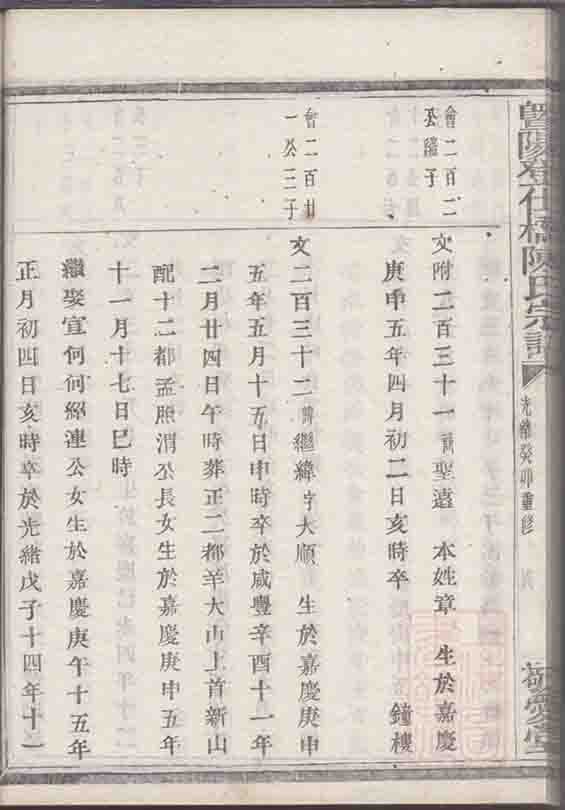 暨陽登仕橋陳氏宗譜
光緒癸卯重修
敬愛堂
會二百二
公繼子
文附二百三十一諱聖遠 本姓章 生於嘉慶
庚申五年四月初二日亥時卒 鐘樓
會二百廿
一公三子
文二百三十二諱繼緯字大順 生於嘉慶庚申
五年五月十五日申時卒於咸豐辛酉十一年
二月廿四日午時葬正二都羊大山上首新山
配十二都孟照渭公長女生於嘉慶庚申五年
十一月十七日巳時
繼娶宣何何紹連公女生於嘉慶庚午十五年
正月初四日亥時卒於光緒戊子十四年十一